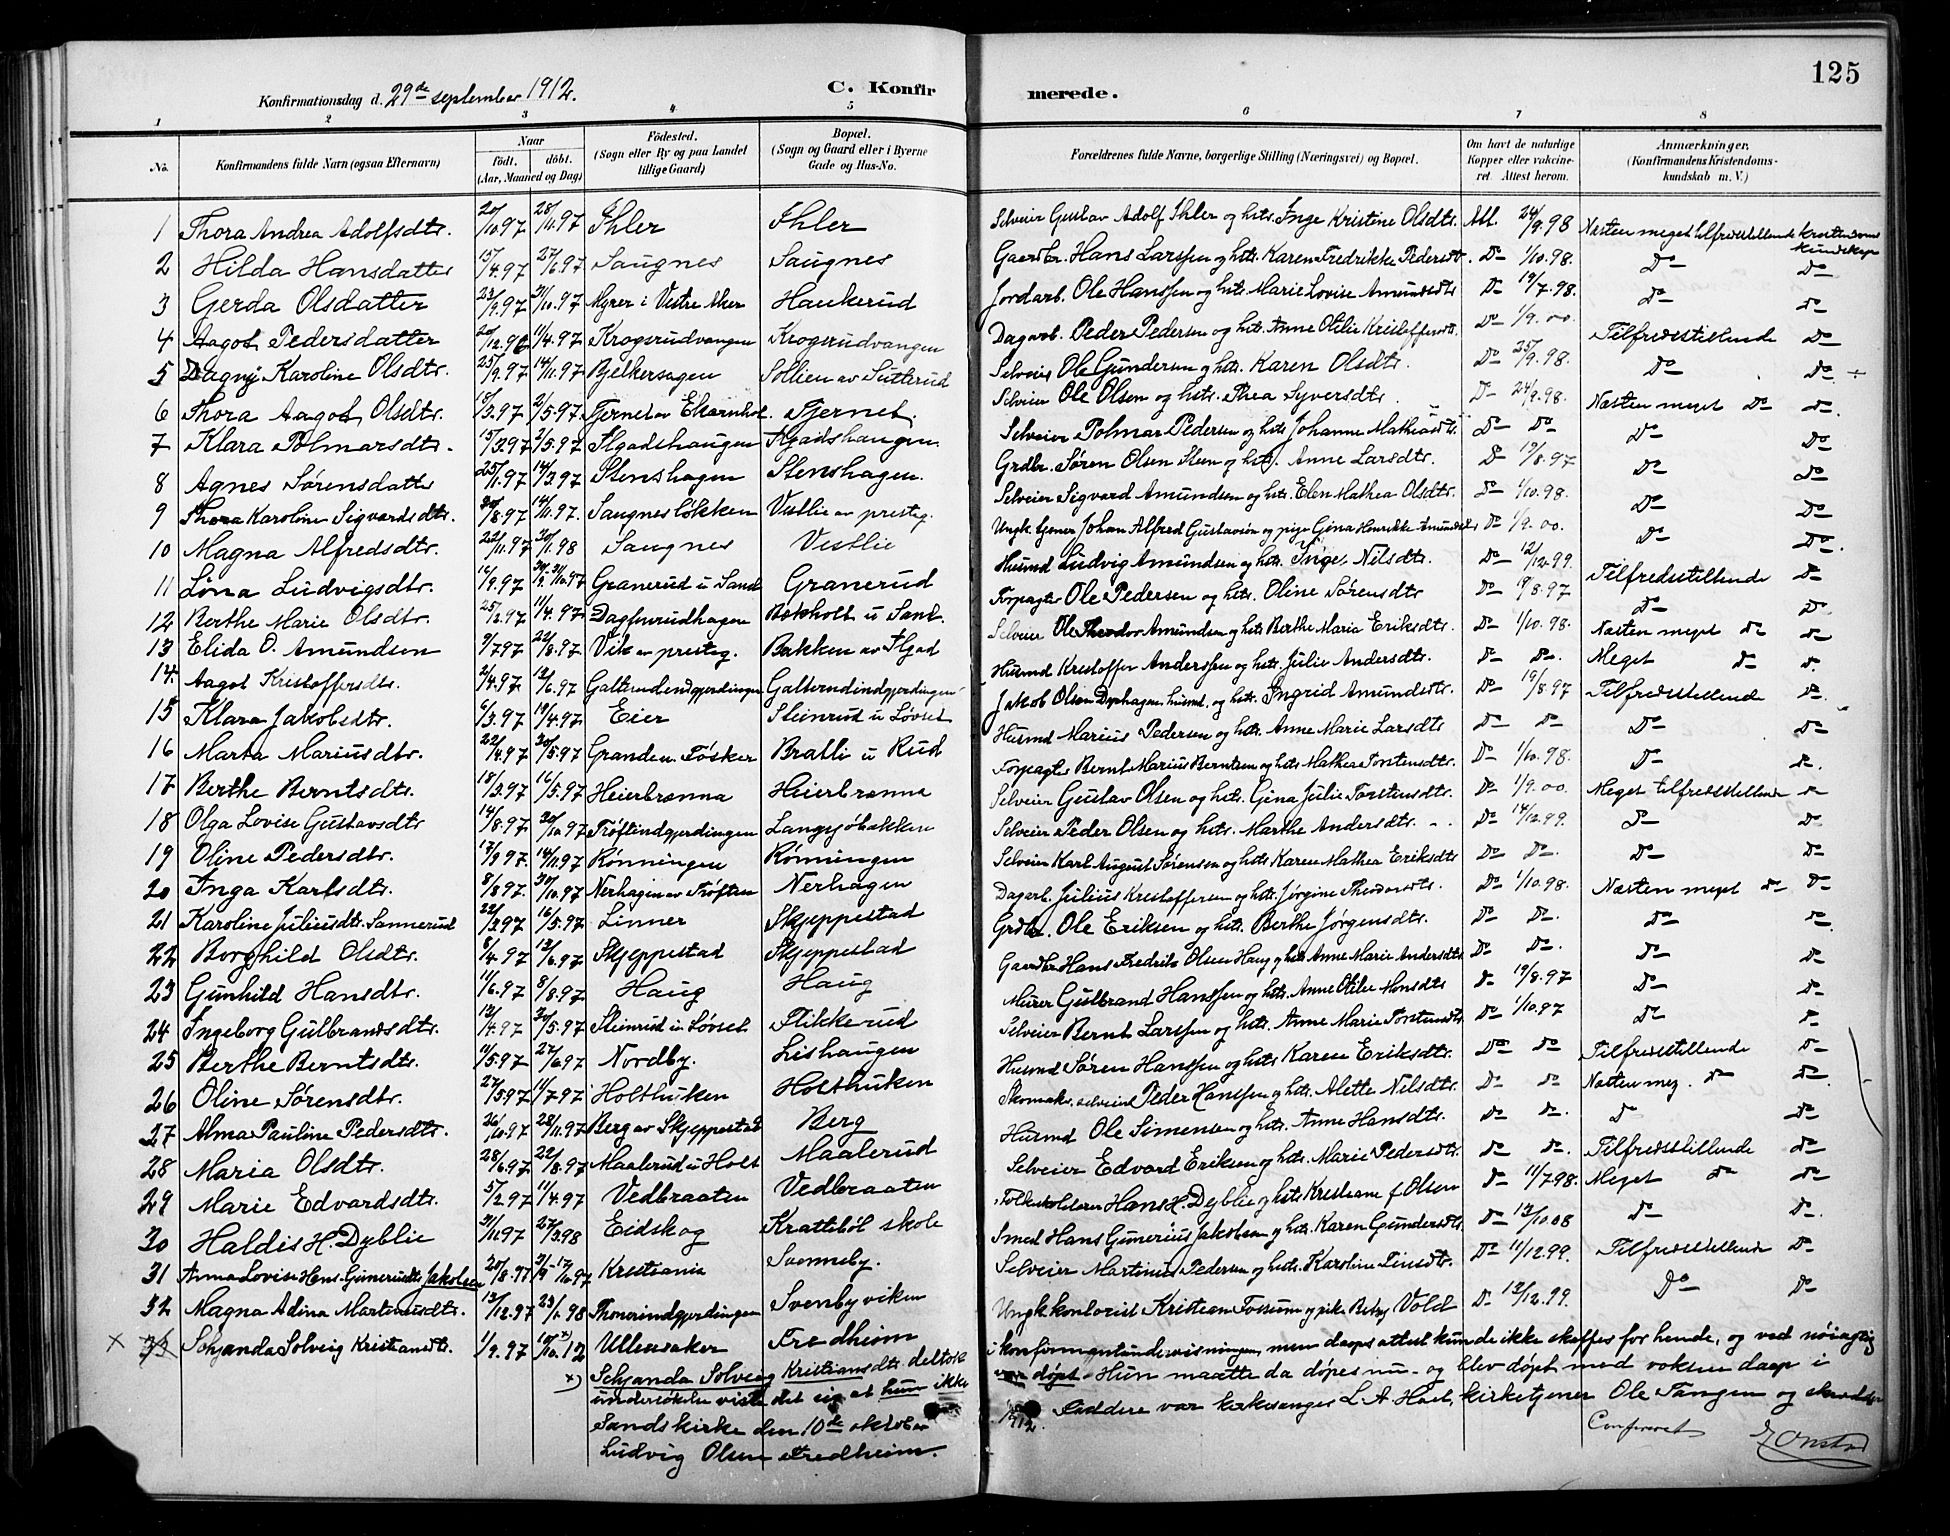 125
Konfirmationsdag d. 29de september 1912.
C. Konfirmerede.
1 2 3 4 5 6 7 8
No. Konfirmandens fulde Navn (ogsaa Efternavn) Naar født. døbt. (Aar, Maaned og Dag) Fødested. (Sogn eller By og paa Landet tillige Gaard) Bopæl. (Sogn og Gaard eller i Byerne Gade og Hus-No. Forældrenes fulde Navne, borgerlige Stilling (Næringsvei) og Bopæl. Om havt de naturlige Kopper eller vakcineret. Attest herom. Anmærkninger. (Konfirmandens Kristendomskundskab m. V.)
1 Thora Andrea Adolfsdtr. 20/10.97 28/11.97 Ihler Ihler Selveier Gustav Adolf Ihler og hstr. Inge Kristine Olsdtr. Att. 24/9.98 Næsten meget tilfredsstillende kristendoms kundskap
2 Hilda Hansdatter 15/4.97 27/6.97 Saugnes Saugnes Gaardbr. Hans Larssen og hstr. Karen Fredrikke Pedersdtr. Do 1/10.98. Do Do
3 Gerda Olsdatter 23/9.97 31/10.97 Myrer i Vestre Aker Haukerud Jordarb. Ole Hanssen og hstr. Marie Lovise Amundsdtr Do 19/7.98. Do Do
4 Aagot Pedersdatter 20/12.96 11/4.97 Krogsrudvangen Krogsrudvangen Dagarb. Peder Pedersen og hstr. Anne Otilie Kristoffersdtr. Do 1/9.00 Tilfredsstillende Do
5 Dagny Karoline Olsdtr. 25/9.97 14/11.97 Bjelkersagen Sollien av Sutterud Selveier Ole Gundersen og hstr. Karen Olsdtr. Do 25/9.98. Do Do
6 Thora Aagot Olsdtr. 18/3.97 2/5.97 Tjernet av Ekornhol. Tjernet. Selveier Ole Olsen og hstr. Thea Syversdtr. Do 24/9.98. Næsten meget Do Do
7 Klara Polmarsdtr. 15/3.97 2/5.97 Flgadshaugen Flgadshaugen Selveier Polmar Pedersen og hstr. Johanne Mathiasdtr Do Do Do Do
8 Agnes Sørensdatter 25/1.97 14/3.97 Stenshagen Stenshagen. Grdbr. Søren Olsen Steen og hstr. Anne Larsdtr. Do 19/8.97 Do Do
9 Thora Karoline Sigvardsdtr. 20/8.97 14/11.97. Saugnesløkken Vestlie av presteg. Selveier Sigvard Amundsen og hstr. Elen Mathea Olsdtr. Do 1/10.98. Do Do
10 Magna Alfredsdtr. 22/11.97 30/1.98 Saugnes Vestlie Ungk. tjener Johan Alfred Gustavsen og pige Gina Henrikke Amundsdtr Do 1/9.00. Do Do
11 Lina Ludvigsdtr. 16/9.97 31/10.97 Granerud u Sand Granerud Husmd Ludvig Amundsen og hstr. Inger Nilsdtr. Do 12/12.99. Tilfredsstillende Do
12 Berthe Marie Olsdtr. 25/2.97 11/4.97 Dagfinrudhagen Bekholt u Sand. Forpagter Ole Pedersen og hstr. Oline Sørensdtr Do 19/8.97 Do Do
13 Elida O. Amundsen 9/7.97 22/8.97 Vik av presteg. Bakken av Flgad Selveier Ole Theodor Amundsen og hstr Berthe Maria Eriksdtr. Do 1/10.98. Næsten meget Do Do
14. Aagot Kristoffersdtr. 2/4.97 12/6.97 Galterudindgjerdingen Galterudindgjerdingen Husmd Kristoffer Anderssen og hstr. Julie Andersdtr. Do Do. Meget Do Do
15 Klara Jakobsdtr. 6/3.97 19/4.97 Eier Steinrud u Løvset Jakob Olsen Dyphagen husmd. og hstr. Ingrid Amundsdtr. Do 19/8.97 Tilfredsstillende Do
16 Marta Mariusdtr. 22/4.97 30/5.97 Granden u. Fosker Bratli u Rud Husmd Marius Pedersen og hstr. Anne Marie Larsdtr Do Do Do Do
17 Berthe Berntsdtr. 18/3.97 16/5.97 Heierbrænna Heierbrænna Forpagter Bernt Marius Berntsen og hstr. Mathea Torstensdtr. Do 1/10.98. Do Do
18 Olga Lovise Gustavsdtr 14/8.97 30/10.97 Trøftindgjerdingen Langsjøbakken Selveier Gustav Olsen og hstr. Gina Julie Torstensdtr. Do 1/9.00. Meget tilfredsstillende Do
19 Oline Pedersdtr. 17/9.97. 14/11.97 Rønningen Rønningen Selveier Peder Olsen og hstr. Marthe Andersdtr. Do 14/12.99. Do Do
20 Inga Karlsdtr. 8/8.97. 30/10.97 Nerhagen av Trøften Nerhagen Selveier Karl August Sørensen og hstr. Karen Mathea Eriksdtr Do Do. Do Do
21 Karoline Juliusdtr. Sannerud 22/3.97 16/5.97 Linner Skjeppestad Dagarb. Julius Kristoffersen og hstr. Jørgine Theodorsdtr. Do 1/10.98. Næsten meget Do Do
22 Borghild Olsdtr. 8/4.97 13/6.97 Skjeppestad Skjeppestad Grdbr. Ole Eriksen og hstr. Berthe Jørgensdtr. Do Do. Do Do
23 Gunhild Hansdtr. 11/6.97 8/8.97 Haug Haug Gaardbr Hans Fredrik Olsen Haug og hstr Anne Marie Andersdtr Do Do. Do Do
24 Ingeborg Gulbrandsdtr. 12/4.97 30/5.97 Steinrud u. Løvset Flikkerud Murer Gulbrand Hanssen og hstr. Anne Otilie Monsdtr Do 19/8.97 Do Do
25 Berthe Berntsdtr. 11/5.97 27/6.97 Nordby. Lishaugen Selveier Bernt Larssen og hstr. Anne Marie Torstensdtr. Do 1/10.97 Do Do
26 Oline Sørensdtr. 27/5.97 11/7.97 Holthuken Holthuken Husmd Søren Hanssen og hstr Karen Eriksdtr. Do Do Tilfredsstillende Do
27 Alma Pauline Pedersdtr. 26/10.97 28/11.97 Berg av Skjeppestad Berg Skomaker, selveier Peder Hanssen og hstr. Alette Nilsdtr. Do Do Næsten meg. Do Do
28 Maria Olsdtr. 28/6.97 22/8.97 Maalerud u Holt Maalerud Husmd Ole Simensen og hstr. Anne Hansdtr. Do Do. Do Do
29 Marie Edvardsdtr. 5/2.97 11/4.97 Vedbraaten Vedbraaten Selveier Edvard Eriksen og hstr. Marie Pedersdtr. Do Do. Tilfredsstillende Do
30 Haldis H. Dyblie 21/11.97 27/3.98 Eidskog Krattebøl skole Folkeskolelærer Hans H. Dyblie og hstr Kristiane f. Olsen Do 11/7.98. Meget Do Do
31 Anna Lovise Hans Gunerius Jakobsen 20/8.97 Kristiania Svenneby. Smed Hans Gunerius Jakobsen og hstr. Karen Gundersdtr. Do 13/10.08 Do Do
32 Magna Adina Martinusdtr. 13/12.97 23/1.98 Thonerindgjerdingen Svenbyviken Selveier Martinus Pedersen og hstr. Karoline Linesdtr. Do 11/12.99. Tilfredsstillende Do
x 33 Schjanda Solveig Kristiansdtr. 1/9.97 10/10.12 x) Ullensaker Fredheim Ungk. kontorist Kristian Fossum og pike Betsy Vold Do 12/12.99. Do Do
x) Schjanda Solveig Kristiansdtr. deltok i konfirmantundervisningen, men daapsattest kunde ikke skaffes for hende, og ved nøiagtig
undersøkelse viste det sig at hun ikke var døpt. Hun maatte da døpes nu - og blev døpt med voksen daap i
Sands kirke den 10de oktober 1912. Faddere var kirkesanger L. A. Hoel, kirketjener Ole Tangen og skrædder
Ludvig Olsen Fredheim.
Confereret
Onstad